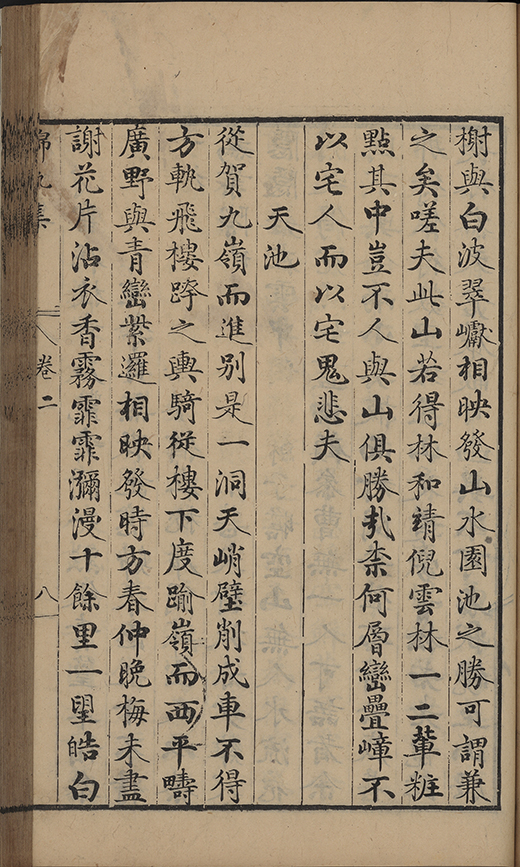 榭與白波翠巘相映發山水園池之勝可謂兼
之矣嗟夫此山若得林和靖倪雲林一二輩粧
點其中豈不人與山俱勝㢤柰何層巒疊嶂不
以宅人而以宅鬼悲夫
天池
從賀九嶺而進别是一洞天峭壁削成車不得
方軌飛樓跨之輿騎従樓下度踰嶺而西平疇
廣野與青巒紫邏相映發時方春仲晩梅未盡
謝花片沾衣香霧霏霏瀰漫十餘里一望皓白
錦帆集
卷二
八